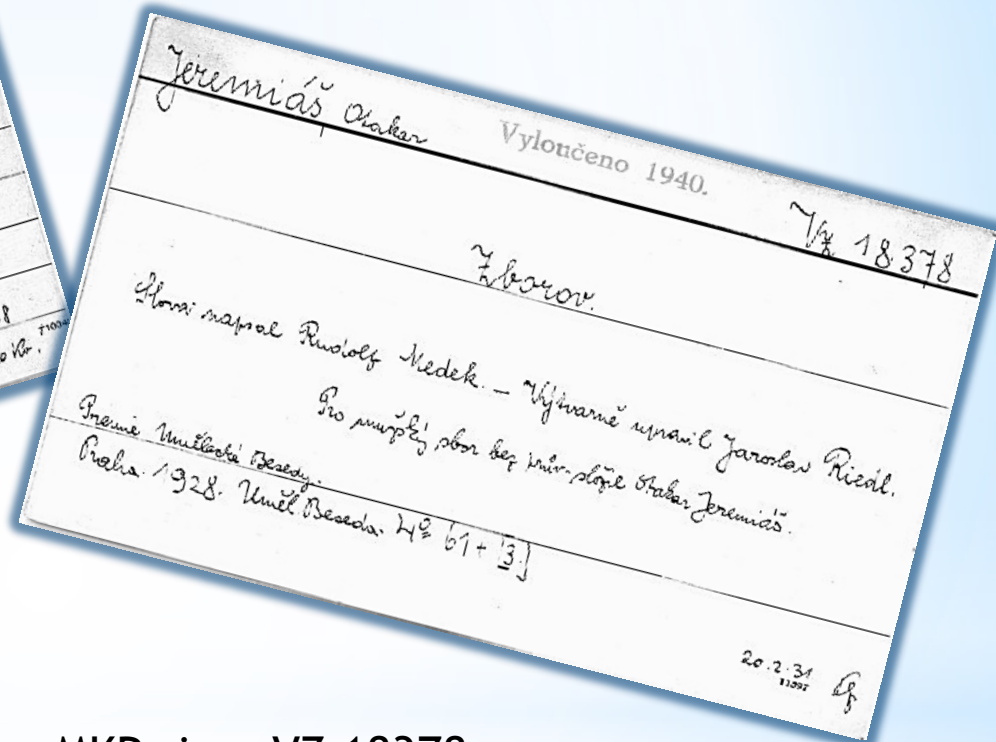 Jeremiáš Otakar
Vyloučeno 1940.
Vz 18.378
Zborov.
Slova napsal Rudolf Medek. – Výtvarně upravil Jaroslav Riedl.
Pro mužský sbor bez složil Otakar Jeremiáš.
Premie Umělecké Besedy.
Praha. 1928. Uměl. Beseda. 4º 61 + [3.]
20.2.31